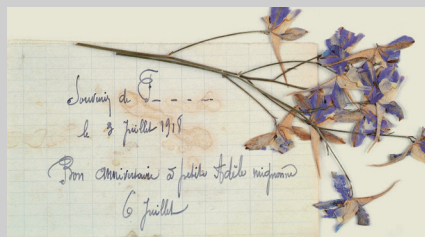 Souvenir de F_ _ _ _ _
le 3 Juillet 1918
Bon anniversaire à petite Adèle mignonne
6 Juillet